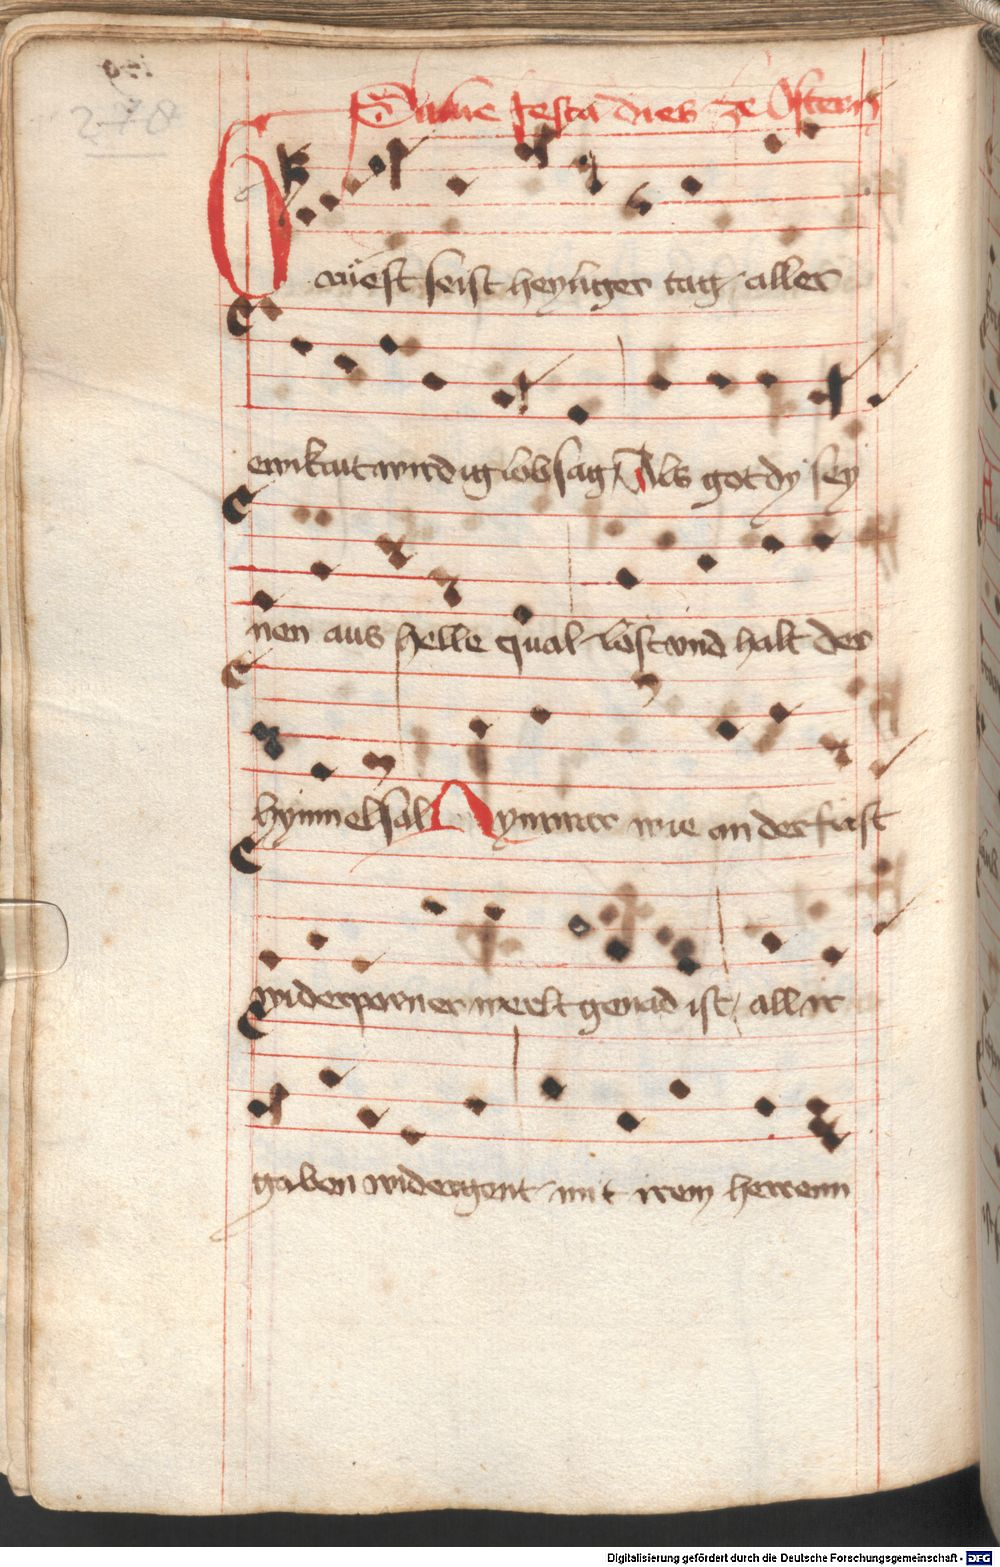 278
Salue festa dies ze Ostern
Gruest seist heyliger tag / aller
ewikait wirdig lobsag / Als got dy sey
nen aus helle qual löst vnd halt der
hymmel sal Nym war wie an der frist
widerporner werlt genad ist / all ir
gaben widergent mit irem herrenn
Digitalisierung gefördert durch die Deutsche Forschungsgemeinschaft - DFG